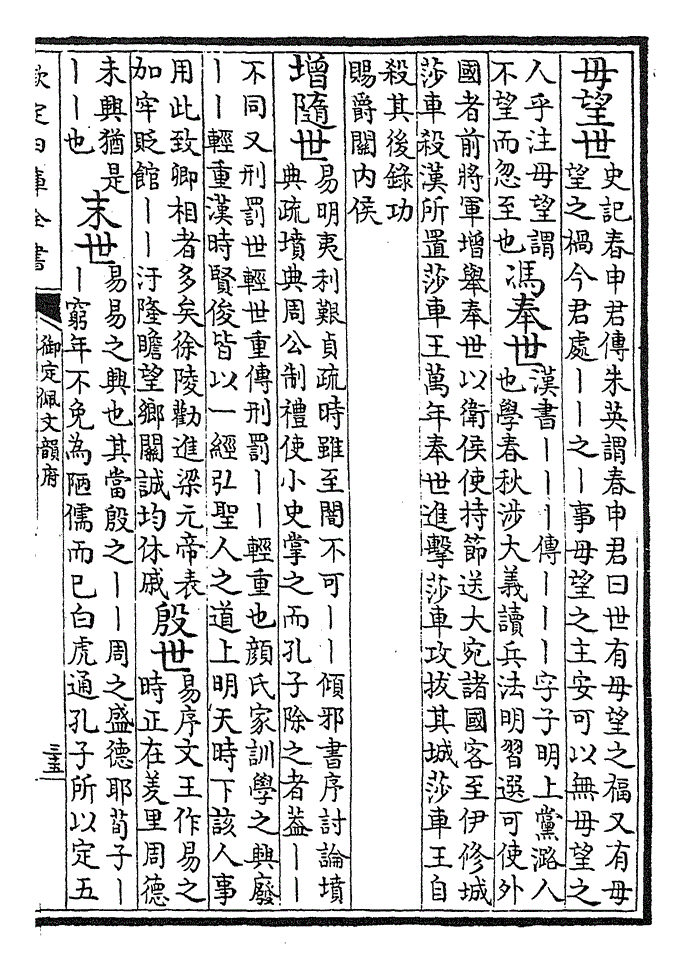 毋望世
史記春申君傳朱英謂春申君曰世有毋望之福又有毋
望之禍今君處丨丨之丨事毋望之主安可以無毋望之
人乎注毋望謂
不望而忽至也
馮奉世
漢書丨丨丨傳丨丨丨字子明上黨潞人
也學春秋涉大義讀兵法明習選可使外
國者前將軍增舉奉世以衛侯使持節送大宛諸國客至伊修城
莎車殺漢所置莎車王萬年奉世進擊莎車攻拔其城莎車王自
殺其後錄功
賜爵關內侯
增隨世
易明夷利艱貞疏時雖至闇不可丨丨傾邪書序討論墳
典疏墳典周公制禮使小史掌之而孔子除之者葢丨丨
不同又刑罰世輕世重傳刑罰丨丨輕重也顏氏家訓學之興廢
丨丨輕重漢時賢俊皆以一經弘聖人之道上明天時下該人事
用此致卿相者多矣徐陵勸進梁元帝表
加牢貶館丨丨汙隆瞻望鄉關誠均休戚
殷世
易序文王作易之
時正在羑里周德
未興猶是
丨丨也
末世
易易之興也其當殷之丨丨周之盛德耶荀子丨
丨窮年不免為陋儒而已白虎通孔子所以定五
欽定四庫全書
御定佩文韻府
三五